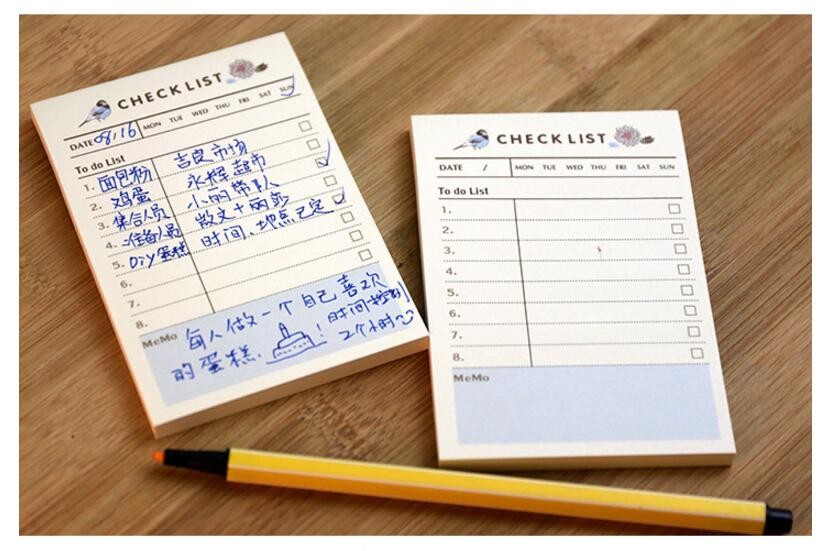 CHECK LIST
DATE 08/16 MON TUE WED THU FRI SAT SUN
To do List
1. 面包粉 吉良市场
2. 鸡蛋 永辉超市
3. 集合人员 小丽带队
4. 准备人员 散文十两莎
5. Diy蛋糕 时间、地点已定
6.
7.
8.
MeMo 每人做一个自己喜欢
的蛋糕. ! 时间控制
2个小时
CHECK LIST
DATE / MON TUE WED THU FRI SAT SUN
To do List
1.
2.
3.
4.
5.
6.
7.
8.
MeMo